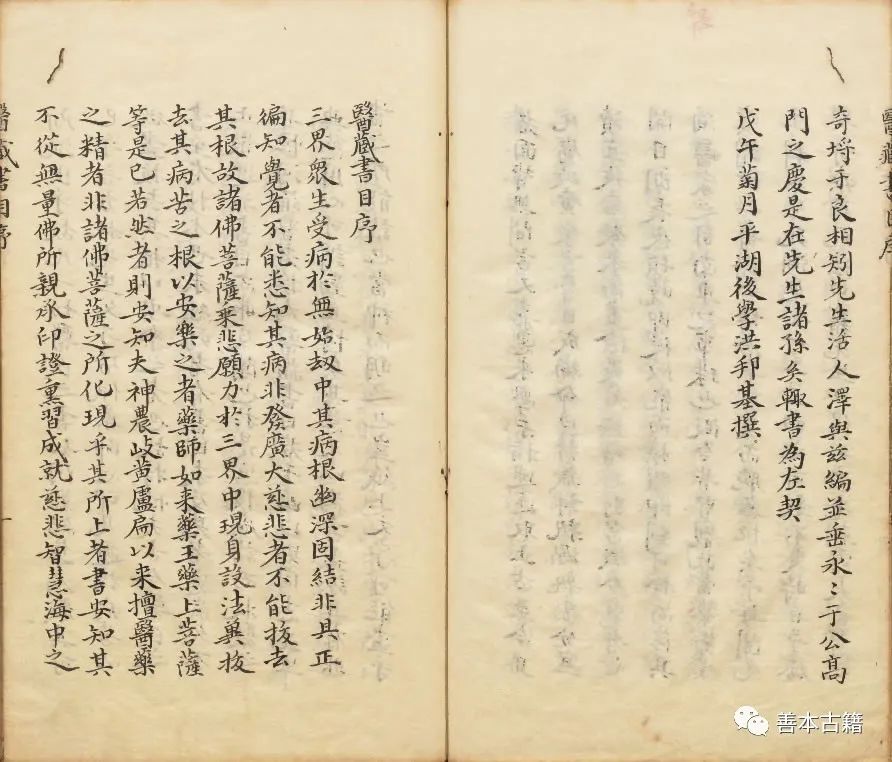 奇埒于良相矧先生活人澤與兹編並垂永〻于公高
門之慶是在先生諸孫矣輙書為左契
戊午菊月平湖後學洪邦基撰
醫藏書目序
三界衆生受病於無始刼中其病根幽深固結非具正
徧知覺者不能悉知其病非發廣大慈悲者不能拔去
其根故諸佛菩薩乘悲願力於三界中現身設法兾拔
去其病苦之根以安樂之者藥師如来藥王藥上菩薩
等是已若然者則安知夫神農岐黄盧扁以来擅醫藥
之精者非諸佛菩薩之所化現乎其所上者書安知其
不從無量佛所親承印證熏習成就慈悲智慧海中之
醫藏書目序
醫藏書目序
一
善本古籍